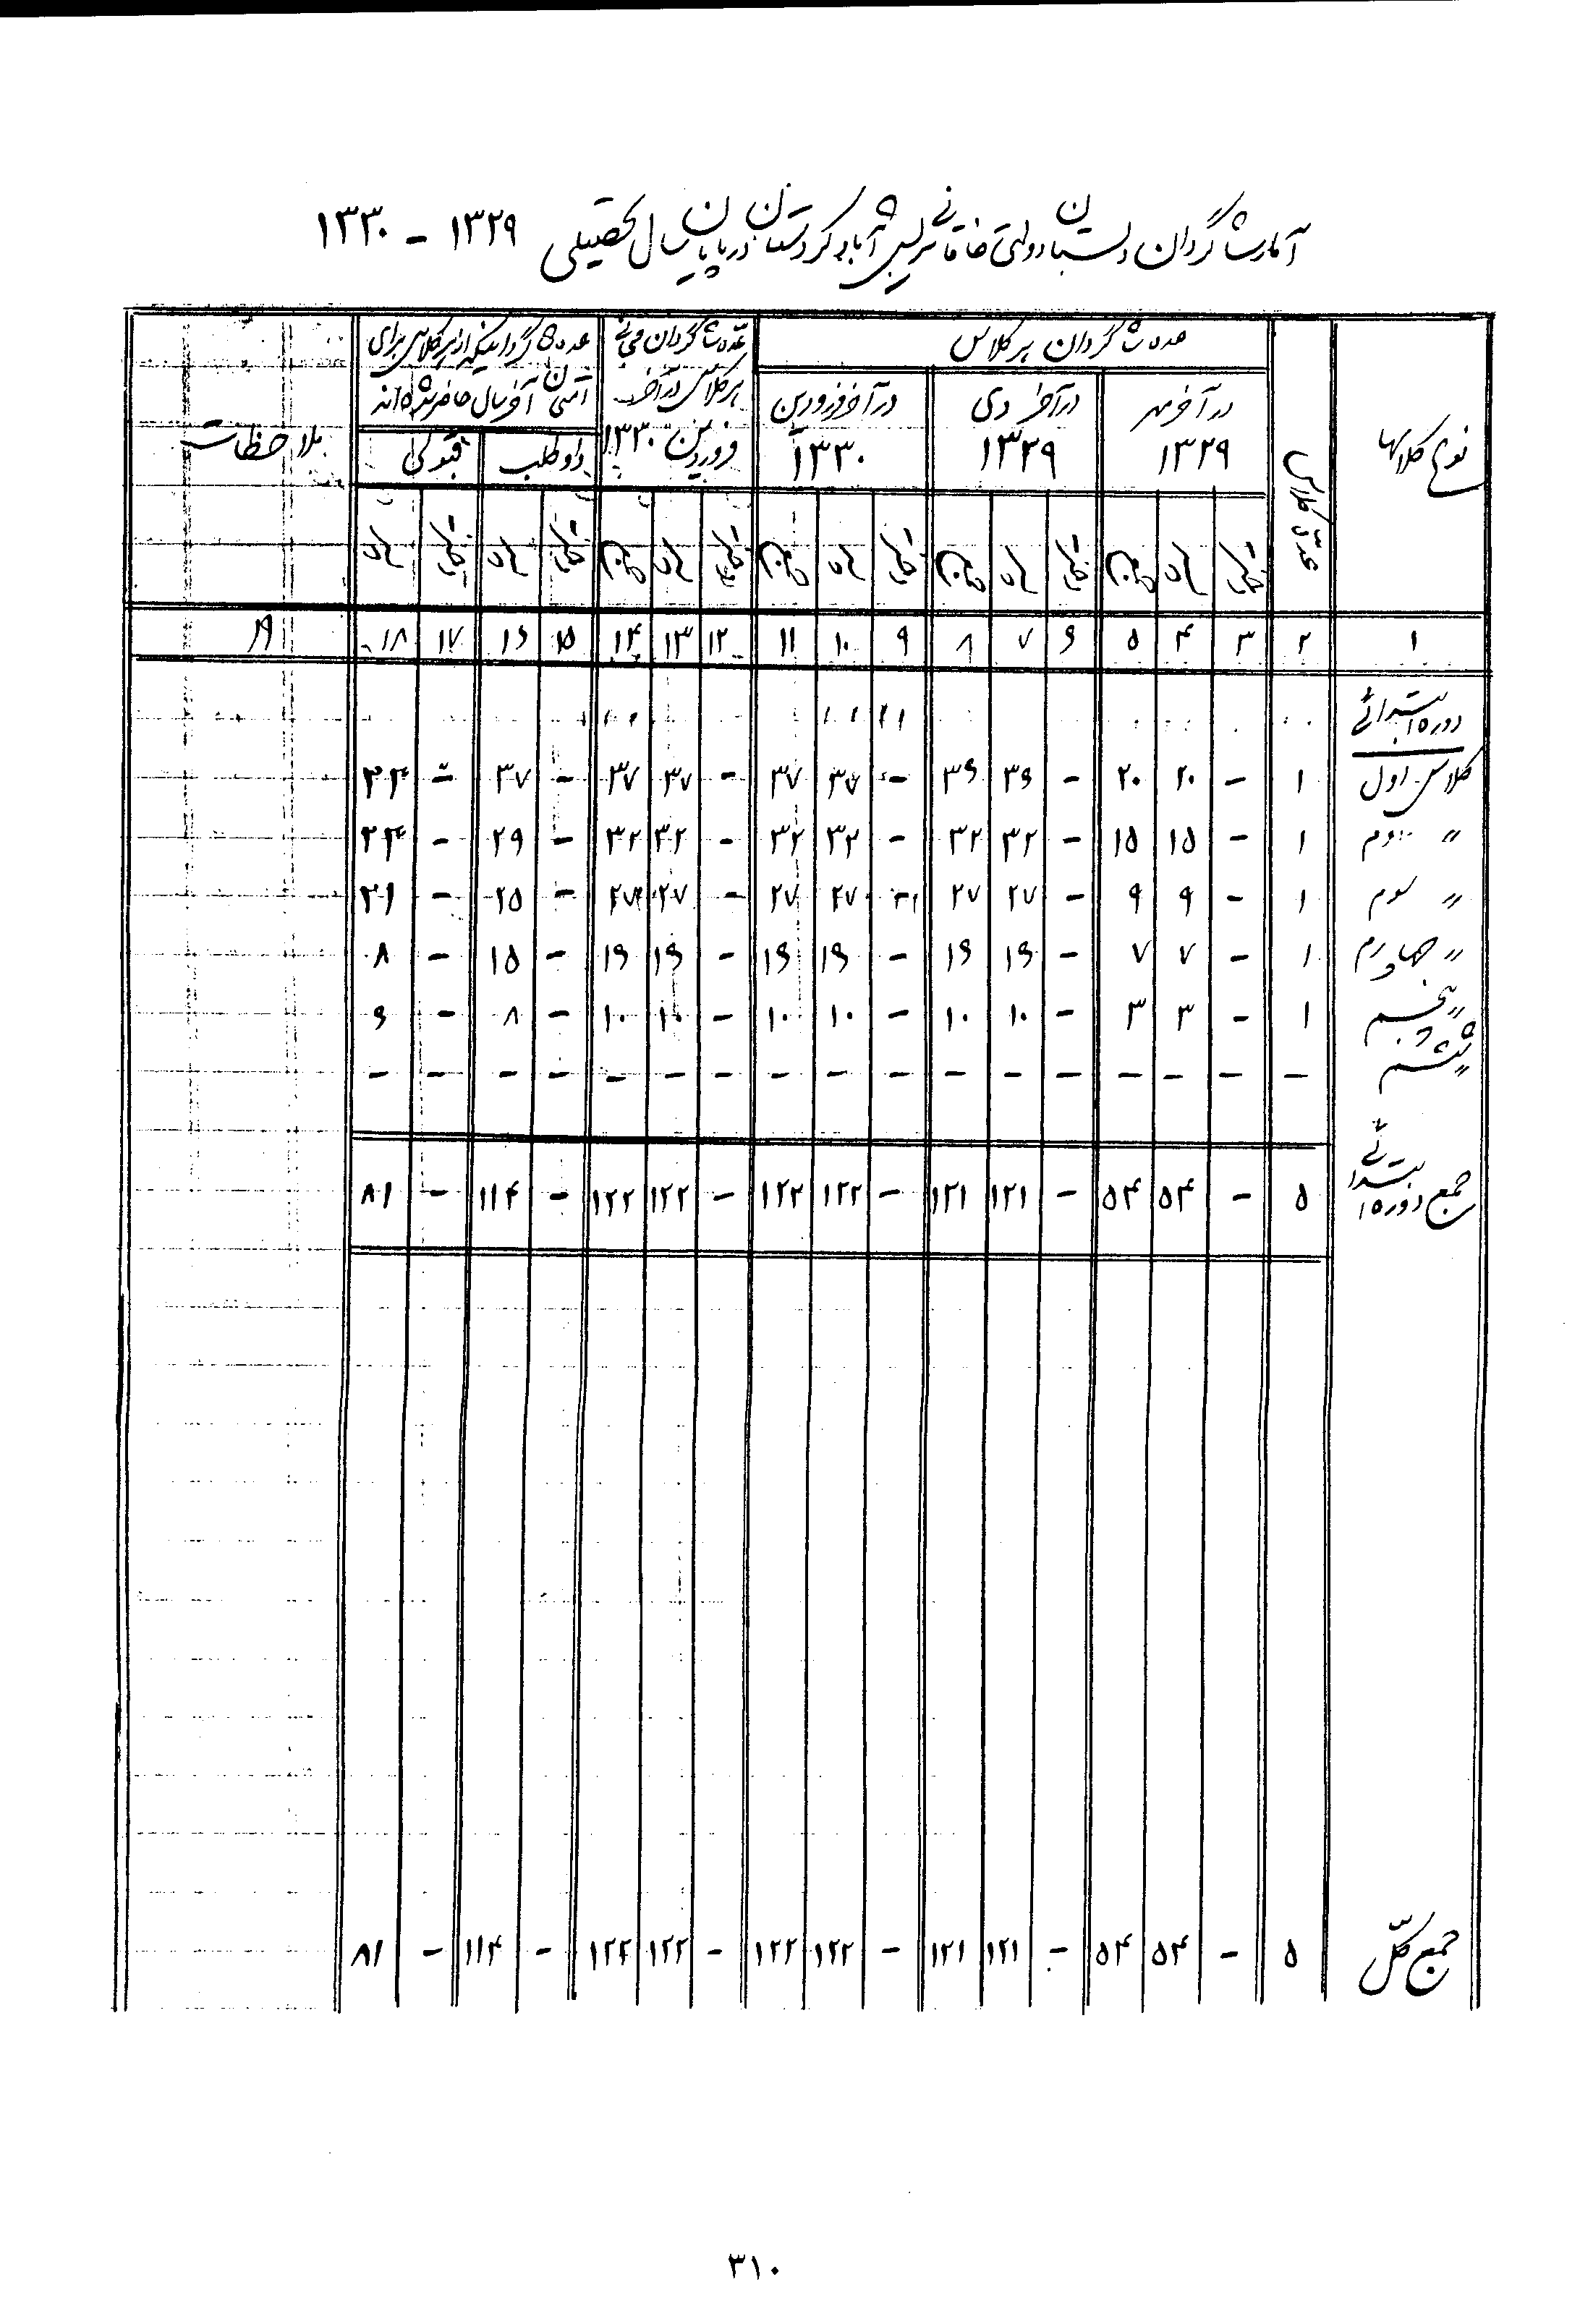 آمار شاگردان دبستان دولتی خاقانی سریش آباد کردستان در پایان سال تحصیلی ۱۳۲۹ - ۱۳۳۰
نوع کلاسها
عده کلاس
عده شاگردان هر کلاس
در آخر مهر ۱۳۲۹
در آخر دی ۱۳۲۹
در آخر فروردین ۱۳۳۰
عده شاگردان مجانی هر کلاس در آخر فروردین ۱۳۳۰
عده شاگردانیکه از هر کلاس برای امتحان آخر سال حاضر شده‌اند
داوطلب قبولی
ملاحظات
۱ ۲ ۳ ۴ ۵ ۶ ۷ ۸ ۹ ۱۰ ۱۱ ۱۲ ۱۳ ۱۴ ۱۵ ۱۶ ۱۷ ۱۸ ۱۹
دوره ابتدائی
کلاس اول ۱ - ۲۰ ۲۰ - ۳۶ ۳۶ - ۳۷ ۳۷ - ۳۷ ۳۷ - ۳۷ -
〃 دوم ۱ - ۱۵ ۱۵ - ۳۲ ۳۲ - ۳۲ ۳۲ - ۳۲ ۳۲ - ۲۹ -
〃 سوم ۱ - ۹ ۹ - ۲۷ ۲۷ - ۲۷ ۲۷ - ۲۷ ۲۷ - ۲۵ - ۲۱
〃 چهارم ۱ - ۷ ۷ - ۱۶ ۱۶ - ۱۶ ۱۶ - ۱۶ ۱۶ - ۱۵ - ۸
〃 پنجم ۱ - ۳ ۳ - ۱۰ ۱۰ - ۱۰ ۱۰ - ۱۰ ۱۰ - ۸ - ۶
〃 ششم - - - - - - - - - - - - - - - - -
جمع دوره ابتدائی ۵ - ۵۴ ۵۴ - ۱۲۱ ۱۲۱ - ۱۲۲ ۱۲۲ - ۱۲۲ ۱۲۲ - ۱۱۴ - ۸۱
جمع کل ۵ - ۵۴ ۵۴ - ۱۲۱ ۱۲۱ - ۱۲۲ ۱۲۲ - ۱۲۲ ۱۲۲ - ۱۱۴ - ۸۱
۳۱۰